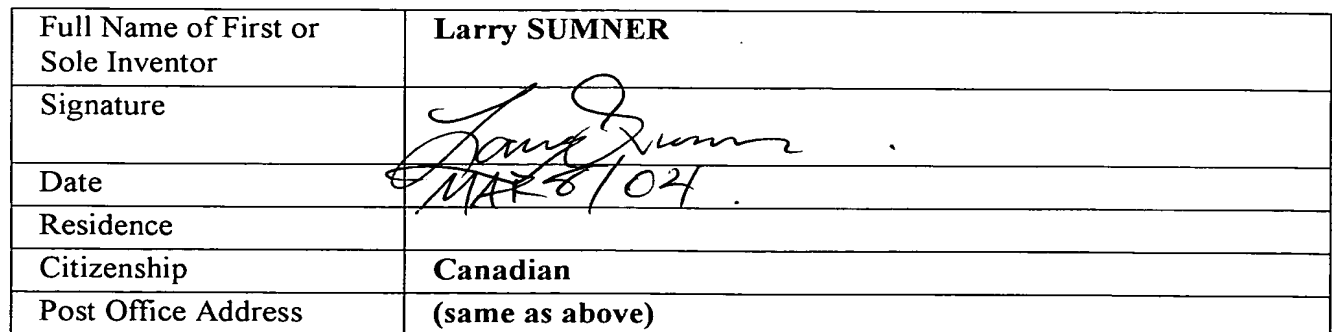 Full Name of First or Larry SUMNER
Sole Inventor
Signature Larry Sumner
Date MAR 8/04
Residence
Citizenship Canadian
Post Office Address (same as above)